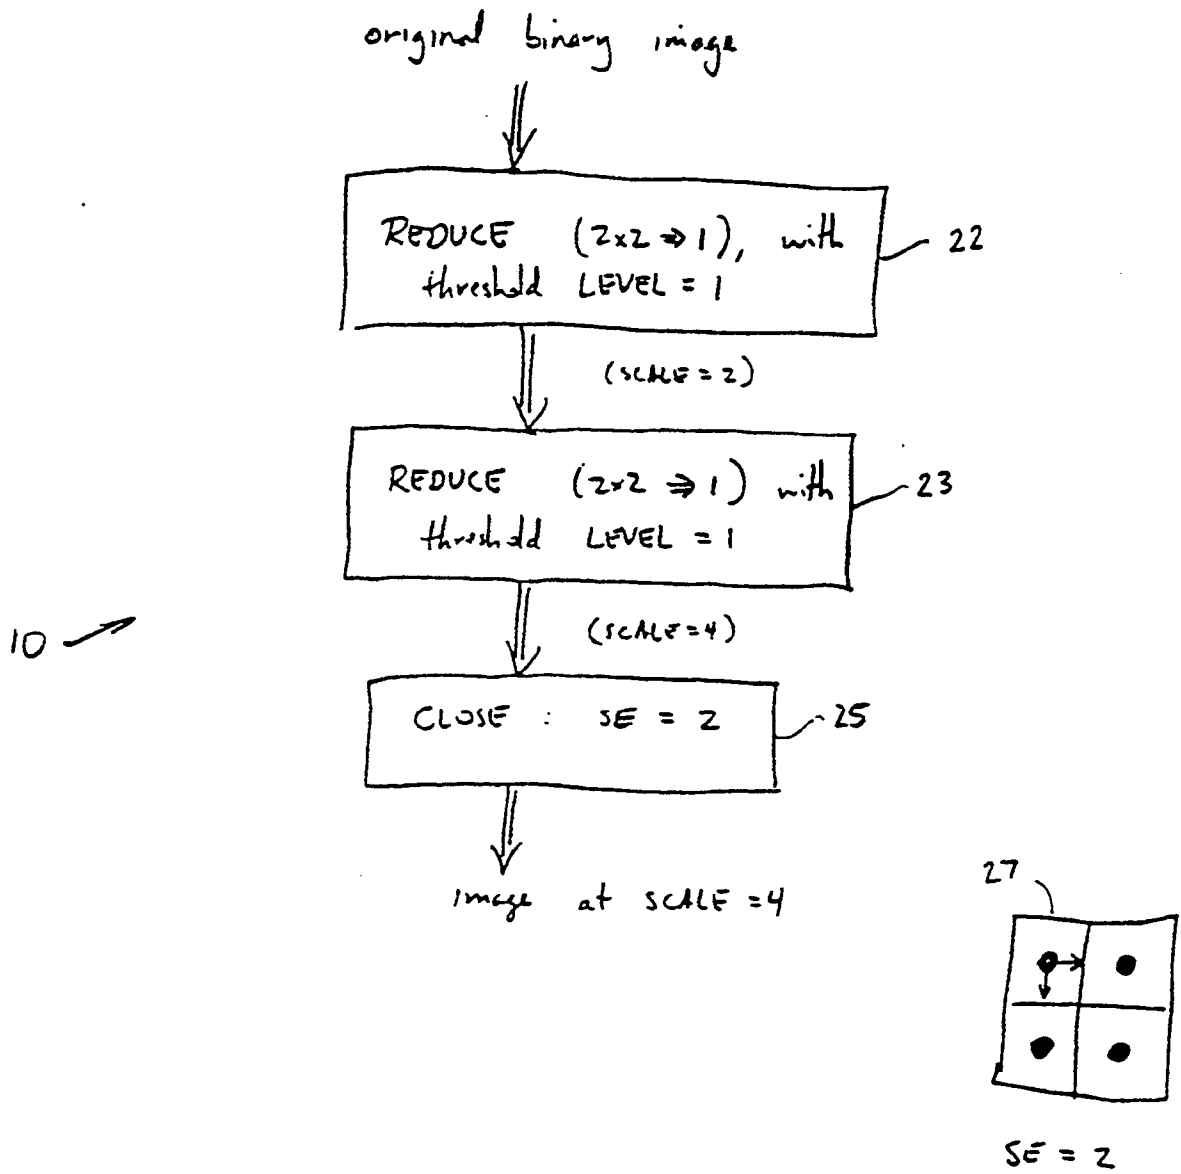 original binary image
REDUCE (2x2 ⇒ 1), with
threshold LEVEL = 1
22
(SCALE = 2)
REDUCE (2x2 ⇒ 1) with
threshold LEVEL = 1
23
10
(SCALE=4)
CLOSE : SE = 2
25
image at SCALE =4
27
SE = 2